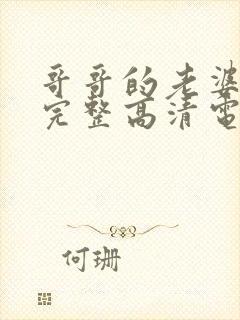 哥哥的老婆
完整高清電
何珊